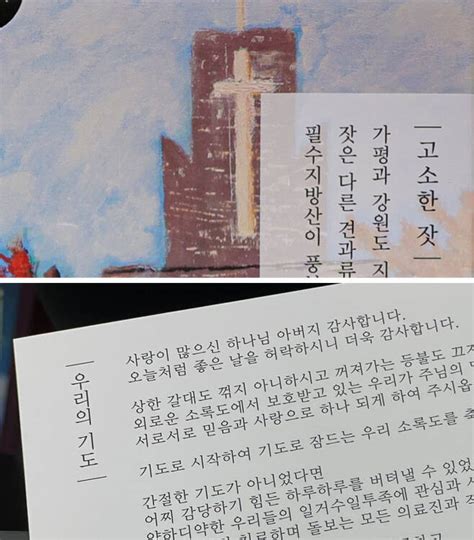 고소한 잣
가평과 강원도 지
잣은 다른 견과류
필수지방산이 풍
우리의 기도
사랑이 많으신 하나님 아버지 감사합니다.
오늘처럼 좋은 날을 허락하시니 더욱 감사합니다.
상한 갈대도 꺾지 아니하시고 꺼져가는 등불도 끄지
외로운 소록도에서 보호받고 있는 우리가 주님의
서로서로 믿음과 사랑으로 하나 되게 하여 주시옵
기도로 시작하여 기도로 잠드는 우리 소록도를
간절한 기도가 아니었다면
어찌 감당하기 힘든 하루하루를 버텨낼 수 있었
약하디약한 우리들의 일거수일투족에 관심과
치료하며 돌보는 모든 의료진과